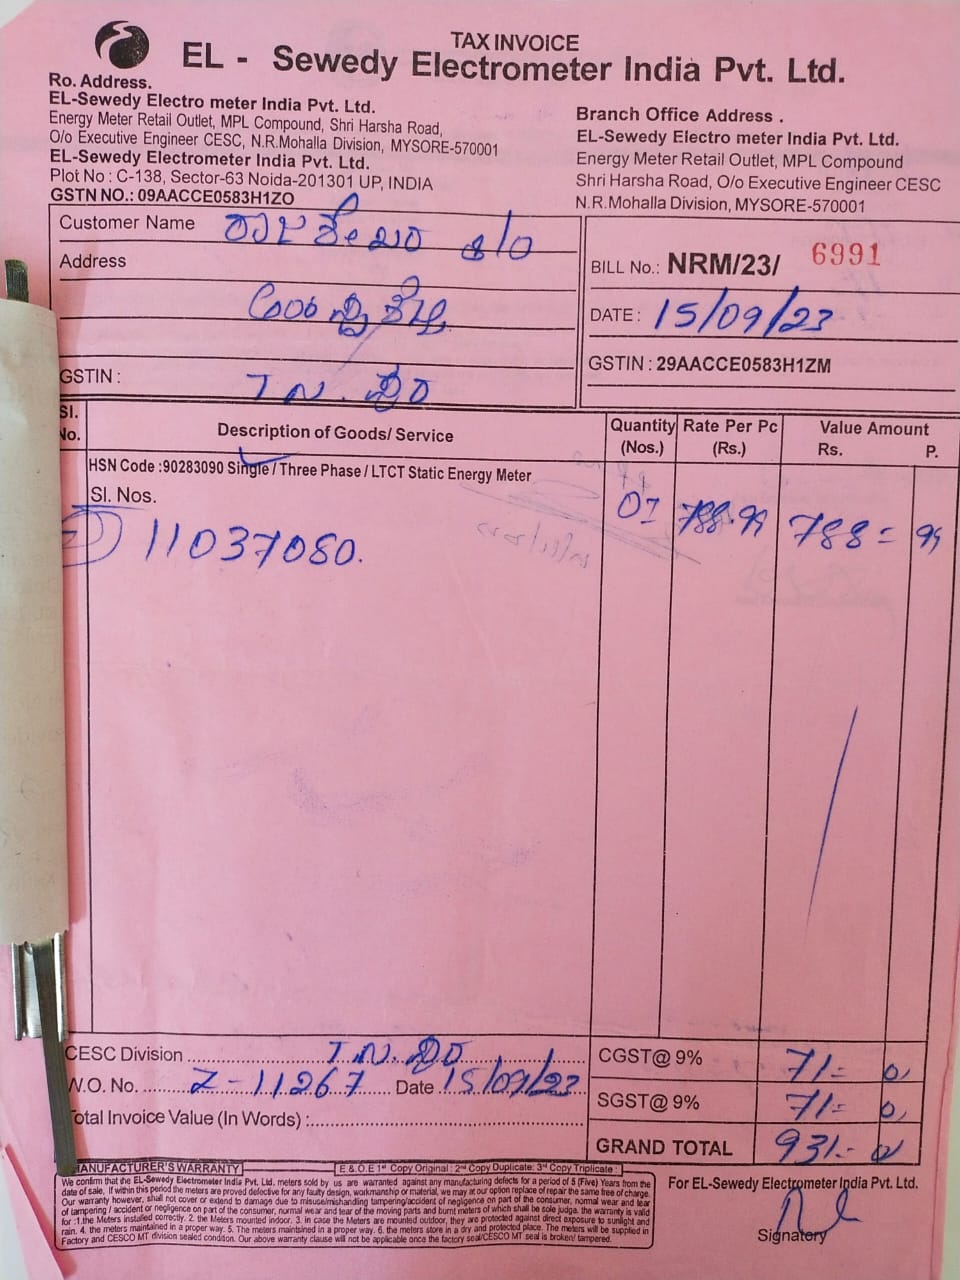 TAX INVOICE
EL - Sewedy Electrometer India Pvt. Ltd.
Ro. Address.
EL-Sewedy Electro meter India Pvt. Ltd.
Energy Meter Retail Outlet, MPL Compound, Shri Harsha Road,
O/o Executive Engineer CESC, N.R.Mohalla Division, MYSORE-570001
EL-Sewedy Electrometer India Pvt. Ltd.
Plot No : C-138, Sector-63 Noida-201301 UP, INDIA
GSTN NO.: 09AACCE0583H1ZO
Branch Office Address .
EL-Sewedy Electro meter India Pvt. Ltd.
Energy Meter Retail Outlet, MPL Compound
Shri Harsha Road, O/o Executive Engineer CESC
N.R.Mohalla Division, MYSORE-570001
Customer Name
Address
GSTIN :
BILL No.: NRM/23/ 6991
DATE : 15/09/23
GSTIN : 29AACCE0583H1ZM
Sl. No. Description of Goods/ Service Quantity (Nos.) Rate Per Pc (Rs.) Value Amount Rs. P.
HSN Code :90283090 Single / Three Phase / LTCT Static Energy Meter
Sl. Nos.
11037080. 01 788.99 788= 99
CESC Division
W.O. No. Z-11267 Date 15/09/23
Total Invoice Value (In Words) :
CGST@ 9% 71= 0
SGST@ 9% 71= 0
GRAND TOTAL 931.- 0
MANUFACTURER'S WARRANTY E & O.E 1st Copy Original : 2nd Copy Duplicate: 3rd Copy Triplicate :
We confirm that the EL-Sewedy Electrometer India Pvt. Ltd. meters sold by us are warranted against any manufacturing defects for a period of 5 (Five) Years from the
date of sale. If within this period the meters are proved defective for any faulty design, workmanship or material, we may at our option replace of repair the same free of charge.
Our warranty however, shall not cover or extend to damage due to misuse/mishandling tampering/accident of negligence on part of the consumer, normal wear and tear
of tampering / accident or negligence on part of the consumer, normal wear and tear of the moving parts and burnt meters of which shall be sole judge. the warranty is valid
for :1.the Meters installed correctly. 2. the Meters mounted indoor. 3. in case the Meters are mounted outdoor, they are protected against direct exposure to sunlight and
rain. 4. the meters maintained in a proper way. 5. The meters maintained in a proper way. 6. the meters store in a dry and protected place. The meters will be supplied in
Factory and CESCO MT division sealed condition. Our above warranty clause will not be applicable once the factory seal/CESCO MT seal is broken/ tampered.
For EL-Sewedy Electrometer India Pvt. Ltd.
Signatory